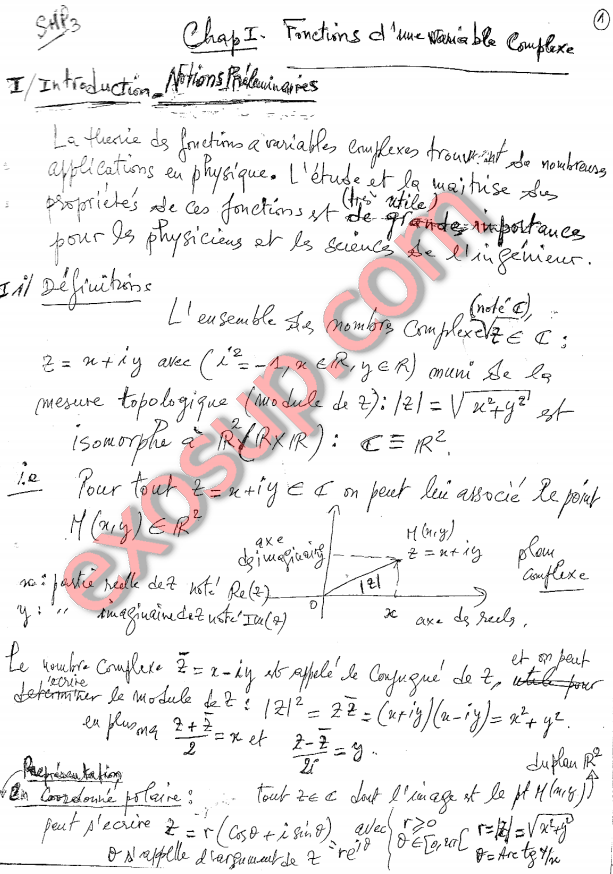 SMP3
①
Chap I. Fonctions d'une variable Complexe
I/ Introduction - Notions Préliminaires
La theorie ds fonctions a variables complexes trouvent de nombreuses
applications en physique. L'étude et la maitrise des
propriétés de ces fonctions est (très utile) de grandes importances
pour les physiciens et les sciences de l'ingénieur.
I ii/ Définitions
L'ensemble des nombre Complexe (noté ℂ), z ∈ ℂ ;
z = x + iy avec (i² = -1, x ∈ ℝ, y ∈ ℝ) muni de la
mesure topologique (module de z) : |z| = √(x²+y²) est
isomorphe à ℝ² (ℝ×ℝ) : ℂ ≡ ℝ².
i.e Pour tout z = x + iy ∈ ℂ on peut lui associé le point
M(x,y) ∈ ℝ²
axe des imaginaires
M(x,y)
z = x + iy
plan complexe
|z|
0
x
axe des reels.
x : partie reelle de z noté Re(z)
y : " imaginaire de z noté Im(z)
Le nombre Complexe z̄ = x - iy est appelé le Conjugué de z, et on peut utile pour
determiner ecrire le module de z : |z|² = z z̄ = (x+iy)(x-iy) = x² + y².
en plus (z + z̄)/2 = x et (z - z̄)/2i = y.
du plan ℝ²
Représentation
En Coordonné polaire : tout z ∈ ℂ dont l'image est le pt M(x,y)
peut s'ecrire z = r(cosθ + i sinθ) = re^{iθ} avec { r ⩾ 0 r = |z| = √(x²+y²)
θ s'appelle d'argument de z θ ∈ [0, 2π[ θ = Arc tg y/x
exosup.com